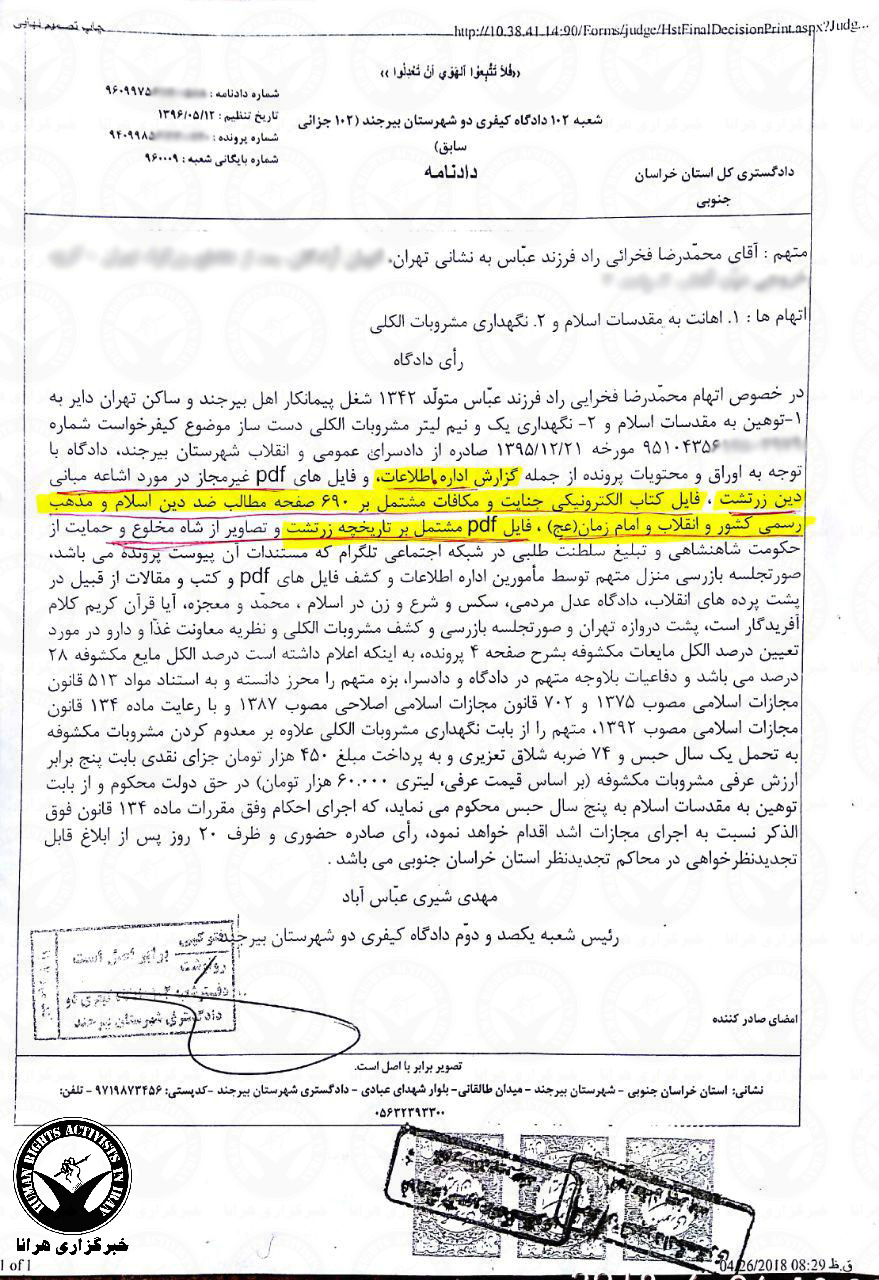 چاپ تصمیم نهایی
http://10.38.41.14:90/Forms/judge/HstFinalDecisionPrint.aspx?Judg...
«فَلاَ تَتَّبِعُواْ اَلْهَوَي أَنْ تَعْدِلُوا »
شماره دادنامه : ۹۶۰۹۹۷۵
تاریخ تنظیم : ۱۳۹۶/۰۵/۱۲
شماره پرونده : ۹۴۰۹۹۸۵
شماره بایگانی شعبه : ۹۶۰۰۰۹
شعبه ۱۰۲ دادگاه کیفری دو شهرستان بیرجند (۱۰۲ جزائی
سابق)
دادنامه
دادگستری کل استان خراسان
جنوبی
متهم : آقای محمّدرضا فخرائی راد فرزند عبّاس به نشانی تهران،
اتهام ها : ۱. اهانت به مقدسات اسلام و ۲. نگهداری مشروبات الکلی
رأی دادگاه
در خصوص اتهام محمّدرضا فخرایی راد فرزند عبّاس متولّد ۱۳۴۲ شغل پیمانکار اهل بیرجند و ساکن تهران دایر به
۱-توهین به مقدسات اسلام و ۲- نگهداری یک و نیم لیتر مشروبات الکلی دست ساز موضوع کیفرخواست شماره
۹۵۱۰۴۳۵۶ مورخه ۱۳۹۵/۱۲/۲۱ صادره از دادسرای عمومی و انقلاب شهرستان بیرجند، دادگاه با
توجه به اوراق و محتویات پرونده از جمله گزارش اداره اطلاعات، و فایل های pdf غیرمجاز در مورد اشاعه مبانی
دین زرتشت ، فایل کتاب الکترونیکی جنایت و مکافات مشتمل بر ۶۹۰ صفحه مطالب ضد دین اسلام و مذهب
رسمی کشور و انقلاب و امام زمان(عج) ، فایل pdf مشتمل بر تاریخچه زرتشت و تصاویر از شاه مخلوع و حمایت از
حکومت شاهنشاهی و تبلیغ سلطنت طلبی در شبکه اجتماعی تلگرام که مستندات آن پیوست پرونده می باشد،
صورتجلسه بازرسی منزل متهم توسط مأمورین اداره اطلاعات و کشف فایل های pdf و کتب و مقالات از قبیل در
پشت پرده های انقلاب، دادگاه عدل مردمی، سکس و شرع و زن در اسلام ، محمّد و معجزه، آیا قرآن کریم کلام
آفریدگار است، پشت دروازه تهران و صورتجلسه بازرسی و کشف مشروبات الکلی و نظریه معاونت غذّا و دارو در مورد
تعیین درصد الکل مایعات مکشوفه بشرح صفحه ۴ پرونده، به اینکه اعلام داشته است درصد الکل مایع مکشوفه ۲۸
درصد می باشد و دفاعیات بلاوجه متهم در دادگاه و دادسرا، بزه متهم را محرز دانسته و به استناد مواد ۵۱۳ قانون
مجازات اسلامی مصوب ۱۳۷۵ و ۷۰۲ قانون مجازات اسلامی اصلاحی مصوب ۱۳۸۷ و با رعایت ماده ۱۳۴ قانون
مجازات اسلامی مصوب ۱۳۹۲، متهم را از بابت نگهداری مشروبات الکلی علاوه بر معدوم کردن مشروبات مکشوفه
به تحمل یک سال حبس و ۷۴ ضربه شلاق تعزیری و به پرداخت مبلغ ۴۵۰ هزار تومان جزای نقدی بابت پنج برابر
ارزش عرفی مشروبات مکشوفه (بر اساس قیمت عرفی، لیتری ۶۰.۰۰۰ هزار تومان) در حق دولت محکوم و از بابت
توهین به مقدسات اسلام به پنج سال حبس محکوم می نماید، که اجرای احکام وفق مقررات ماده ۱۳۴ قانون فوق
الذکر نسبت به اجرای مجازات اشد اقدام خواهد نمود، رأی صادره حضوری و ظرف ۲۰ روز پس از ابلاغ قابل
تجدیدنظرخواهی در محاکم تجدیدنظر استان خراسان جنوبی می باشد .
مهدی شیری عبّاس آباد
رئیس شعبه یکصد و دوّم دادگاه کیفری دو شهرستان بیرجند
فتوکپی
رونوشت
برابر اصل است
دادگستری شهرستان بیرجند
امضای صادر کننده
تصویر برابر با اصل است.
نشانی: استان خراسان جنوبی - شهرستان بیرجند - میدان طالقانی- بلوار شهدای عبادی - دادگستری شهرستان بیرجند -کدپستی: ۹۷۱۹۸۷۳۴۵۶ - تلفن:
۰۵۶۳۲۳۹۳۳۰۰
HUMAN RIGHTS ACTIVISTS IN IRAN
خبرگزاری هرانا
1 of 1
04/26/2018 08:29 ق.ظ